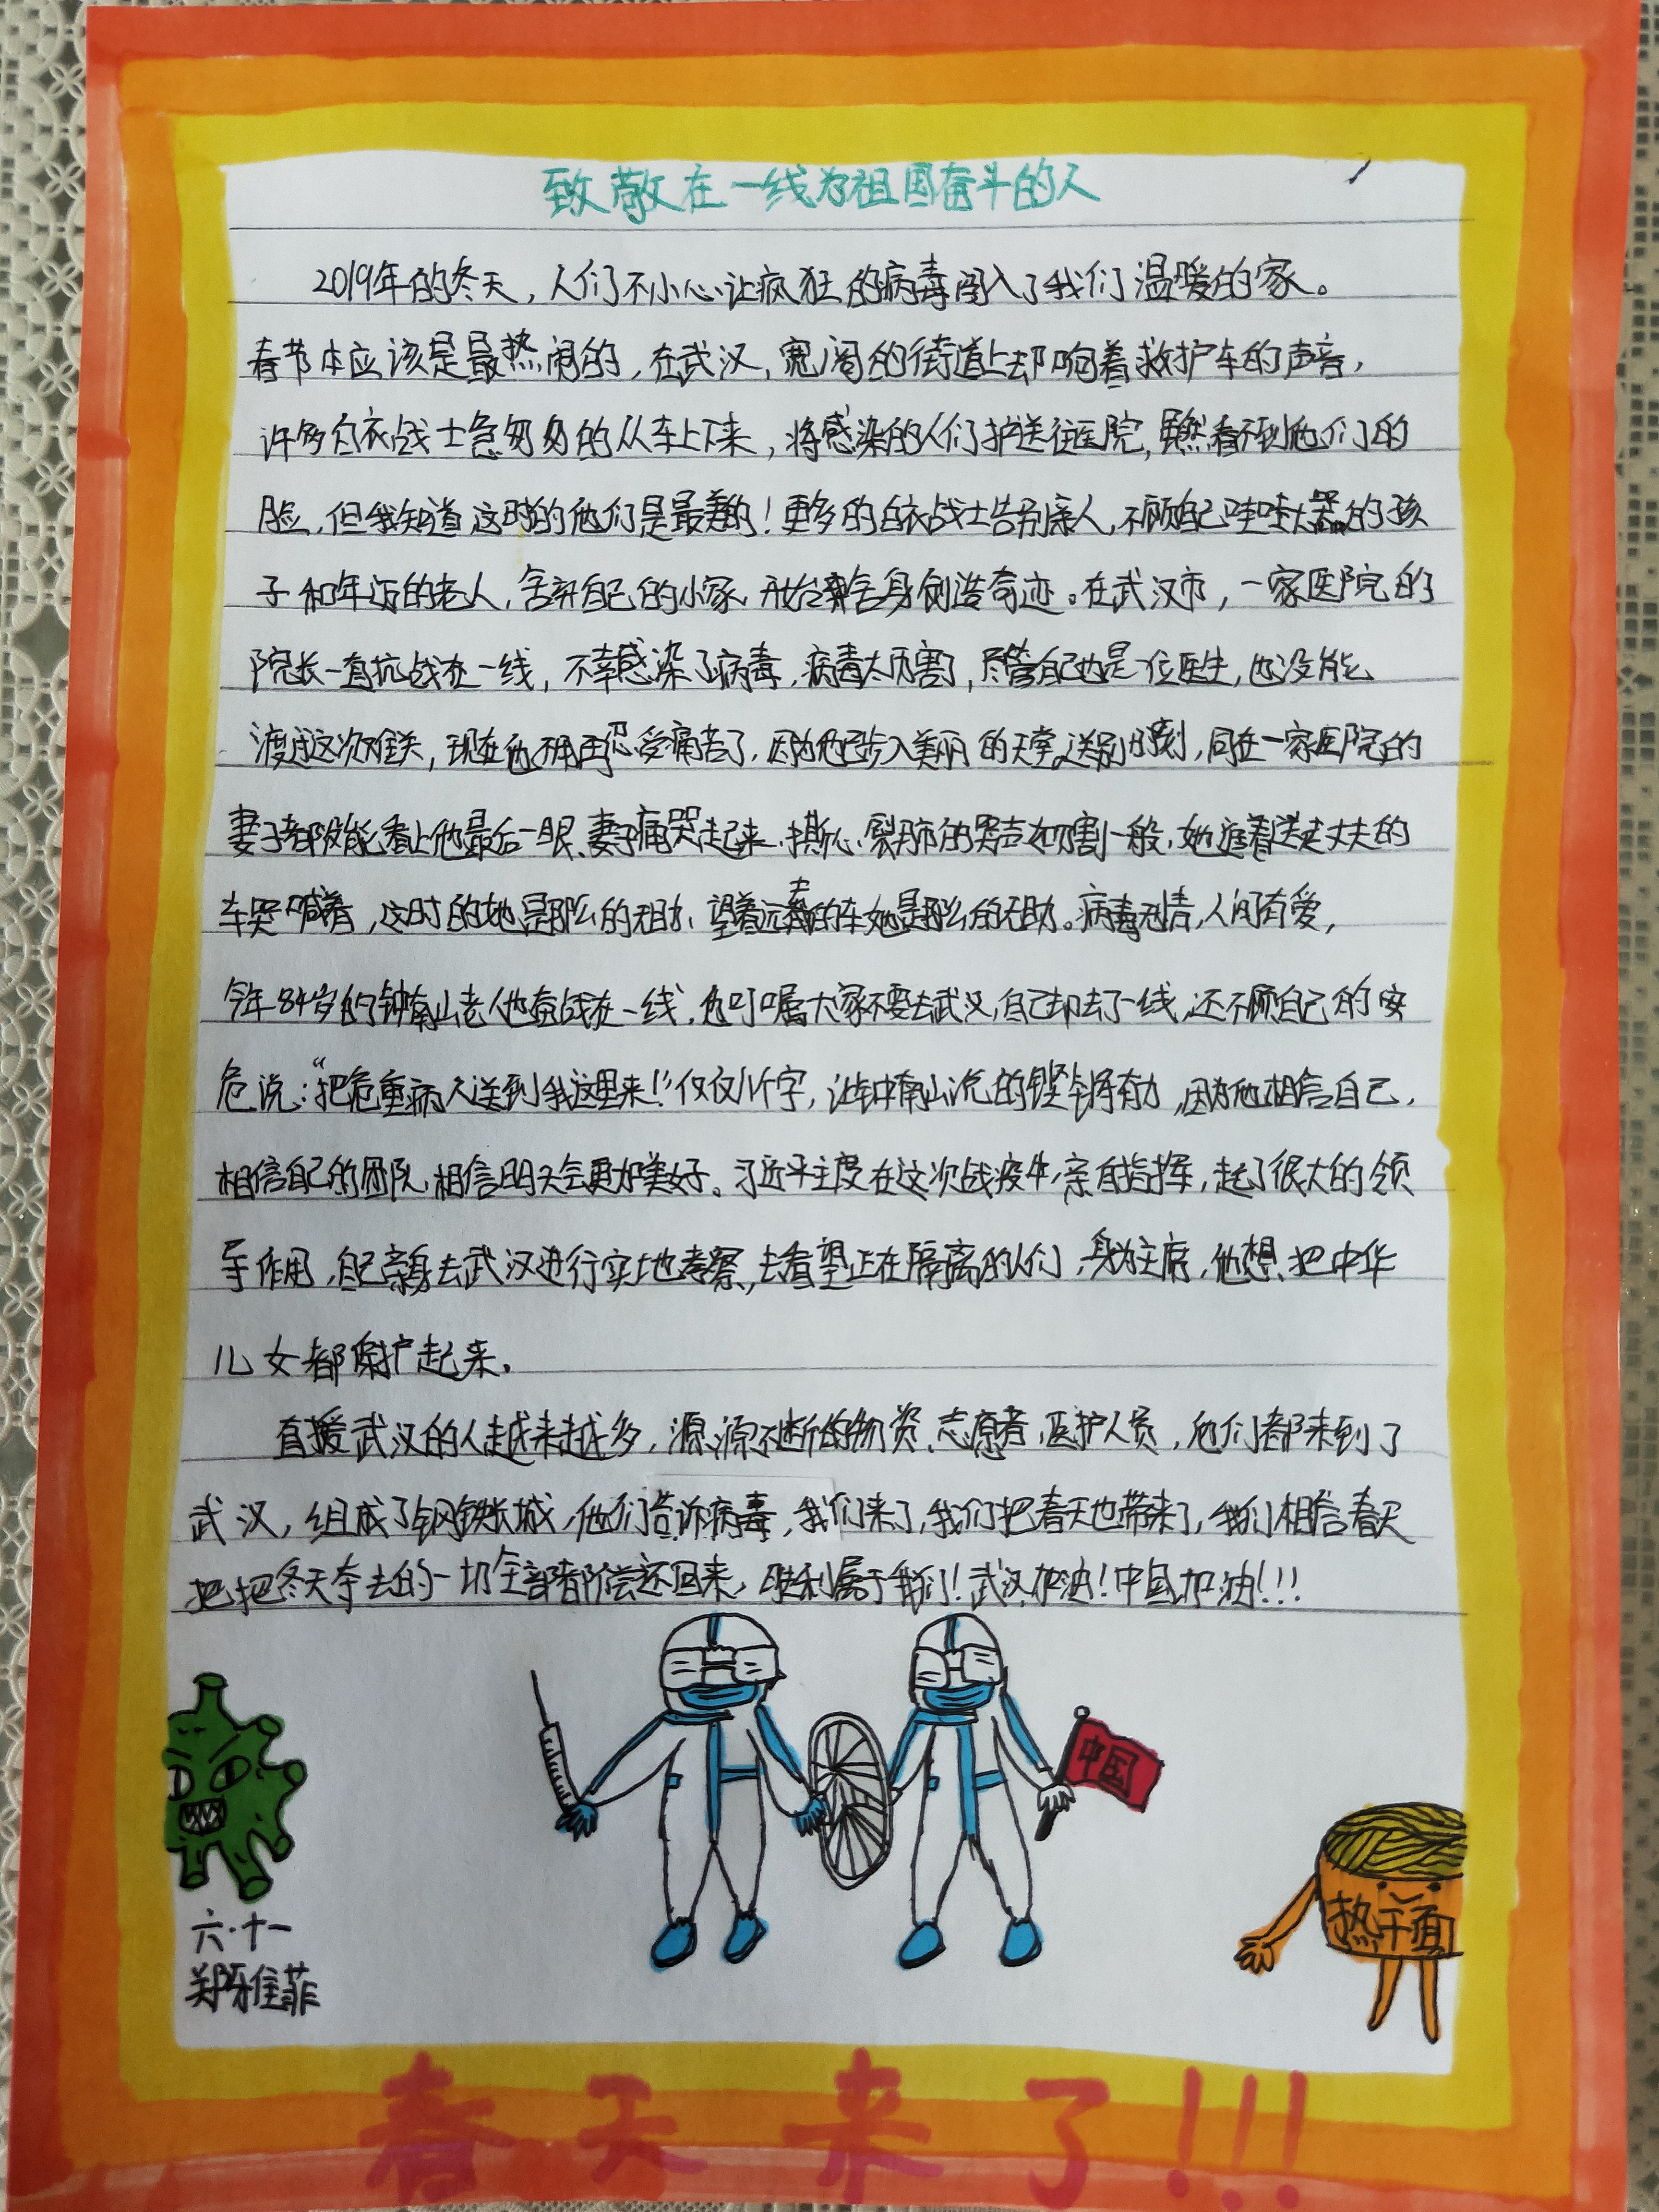 致敬在一线为祖国奋斗的人
2019年的冬天，人们不小心让疯狂的病毒闯入了我们温暖的家。
春节本应该是最热闹的，在武汉，宽阔的街道上却响着救护车的声音，
许多白衣战士急匆匆的从车上下来，将感染的人们护送往医院，虽然看不到他们的
脸，但我知道这时的他们是最美的！更多的白衣战士告别亲人，不顾自己哇哇大哭的孩
子和年迈的老人，舍弃自己的小家，舍身创造奇迹。在武汉市，一家医院的
院长一直抗战在一线，不幸感染了病毒，病毒太厉害了，尽管自己也是一位医生，也没能
渡过这次难关，现在他不用再忍受痛苦了，因为他已步入美丽的天堂，送别时刻，同在一家医院的
妻子都没能看上他最后一眼，妻子痛哭起来，撕心裂肺的哭声如刀割一般，她追着送走丈夫的
车哭喊着，这时的她是那么的无助，望着远去的车她是那么的无助。病毒无情，人间有爱，
今年84岁的钟南山老人他奋战在一线，他叮嘱大家不要去武汉，自己却去了一线，还不顾自己的安
危说：“把危重病人送到我这里来！”仅仅几个字，让钟南山说的铿锵有力，因为他相信自己，
相信自己的团队，相信明天会更加美好。习近平主席在这次战疫中，亲自指挥，起了很大的领
导作用，自己亲身去武汉进行实地考察，去看望正在隔离的人们，身为主席，他想把中华
儿女都保护起来。
支援武汉的人越来越多，源源不断的物资、志愿者、医护人员，他们都来到了
武汉，组成了钢铁长城，他们告诉病毒，我们来了，我们把春天也带来了，我们相信春天
把把冬天夺去的一切全部都偿还回来，胜利属于我们！武汉加油！中国加油！！！
中国
热干面
六·十一
郑雅菲
春天来了！！！